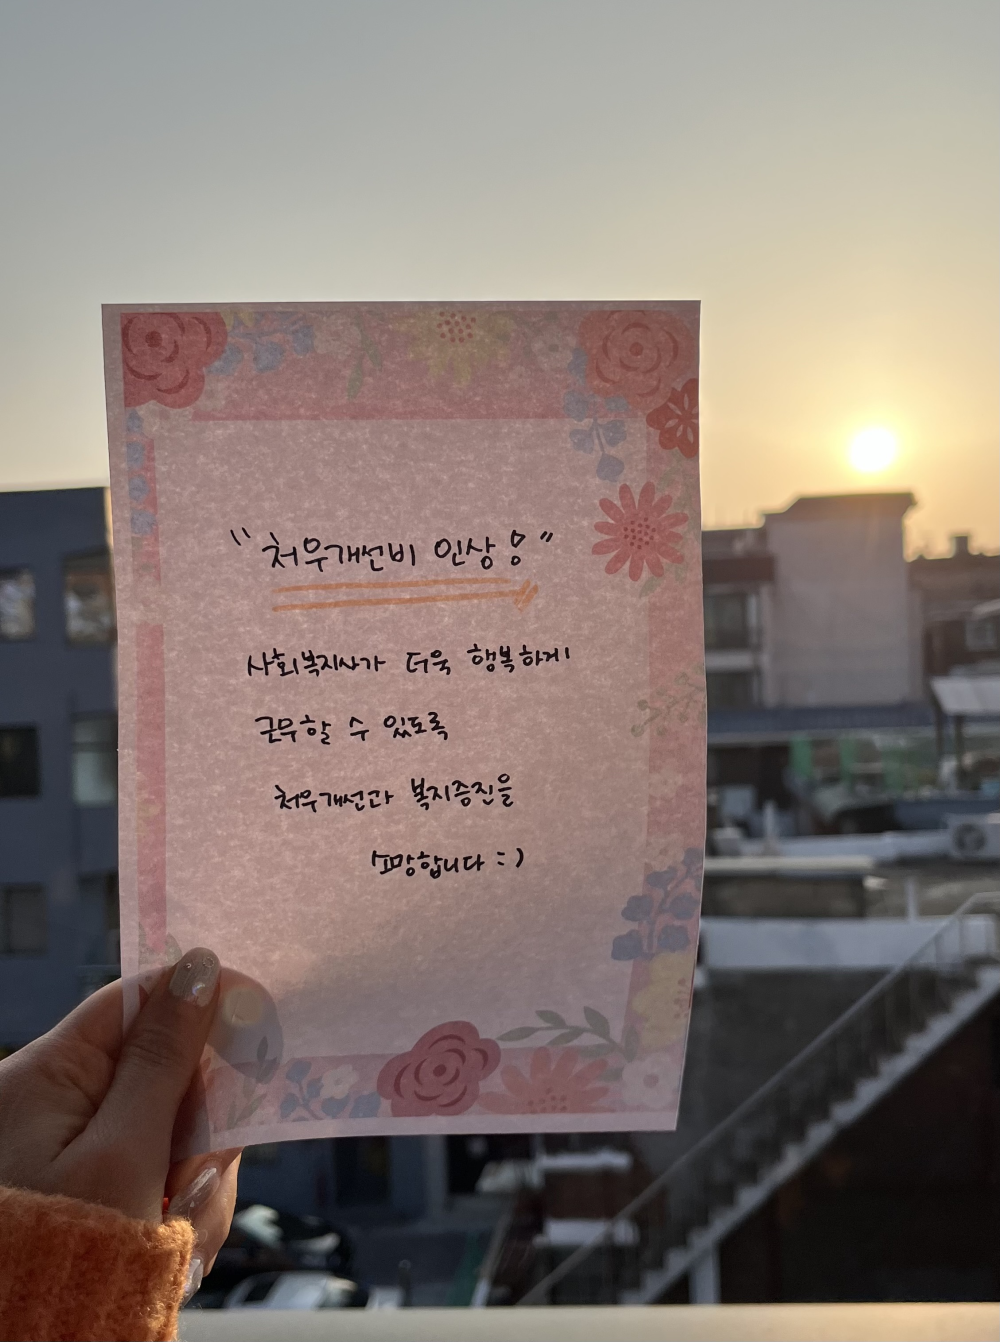 "처우개선비 인상!"
사회복지사가 더욱 행복하게
근무할 수 있도록
처우개선과 복지증진을
소망합니다 :)